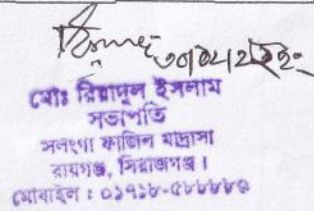 মোঃ রিয়াদুল ইসলাম
সভাপতি
সলংগা ফাজিল মাদ্রাসা
রায়গঞ্জ, সিরাজগঞ্জ।
মোবাইল : ০১৭১৮-৫৮৮৮৮৬